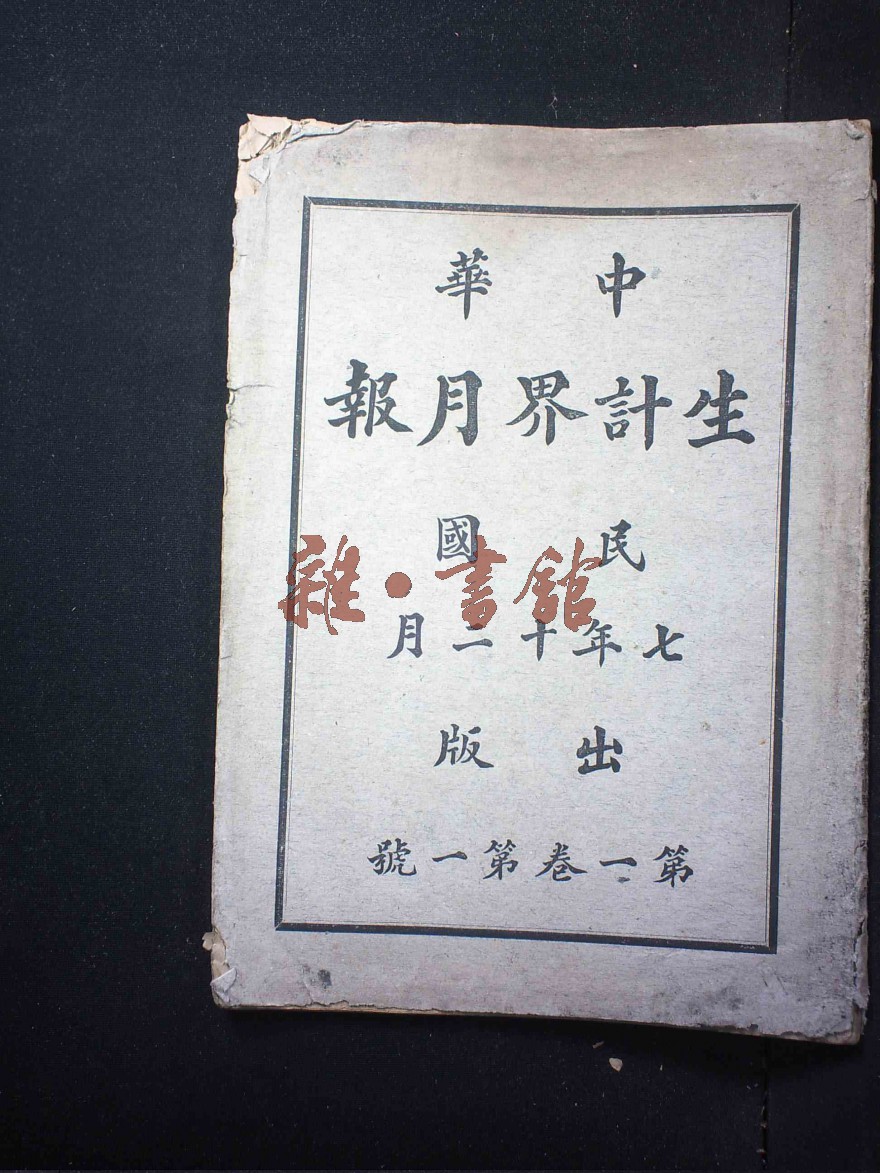 中華
生計界月報
民國
七年十二月
出版
第一卷第一號
雜·書館